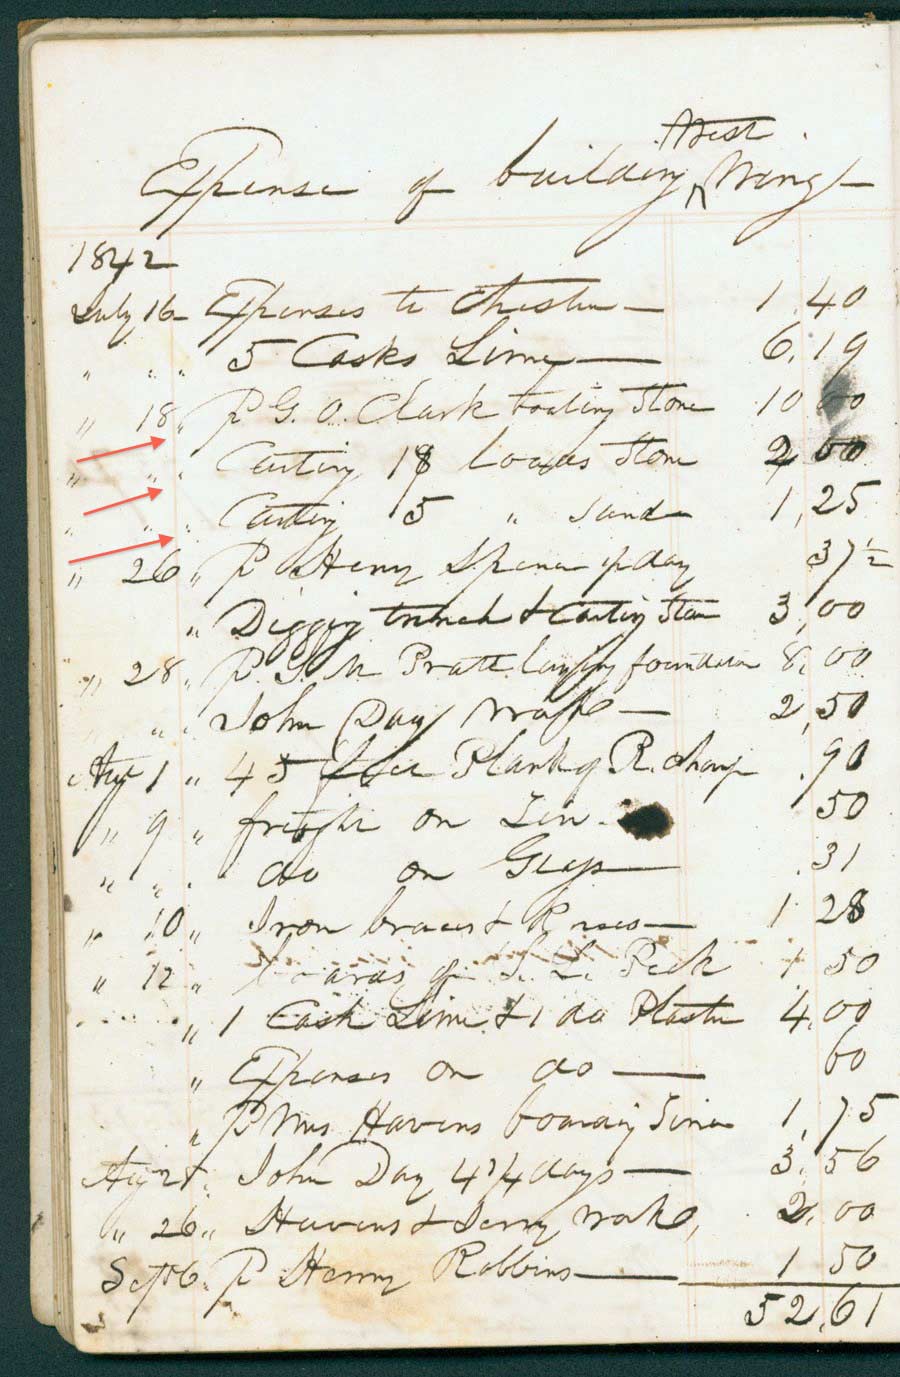 West
Expense of building ^ Wing
1842
July 16 Expenses to Chester — 1.40
" " " 5 Casks Lime — 6.19
" 18 " p G. O. Clark boating Stone 10 00
" " " Carting 18 loads Stone 2 00
" " " Carting 5 " Sand 1,25
" 26 " p Henry Spencer day 37 1/2
" Digging trench & Carting Stone 3,00
" 28 " p. S. M Pratt laying foundation 8,00
" " " John Day work — 2,50
Aug 1 " 45 feet Plank of R. .90
" 9 " freight on Tin 50
" " " do on Gups — .31
" 10 " Iron braces & — 1 28
" 12 " boards of S. L. Peck 1 50
" 1 Cask Lime & 1 do Plaster 4,00
" Expenses on do — 60
" p Mrs Havens boarding 1,75
Aug 25 " John Day 4 3/4 days — 3.56
" 26 " Havens & Jerry Work, 2,00
Sept 6 p Henry Robbins — 1 50
52,61